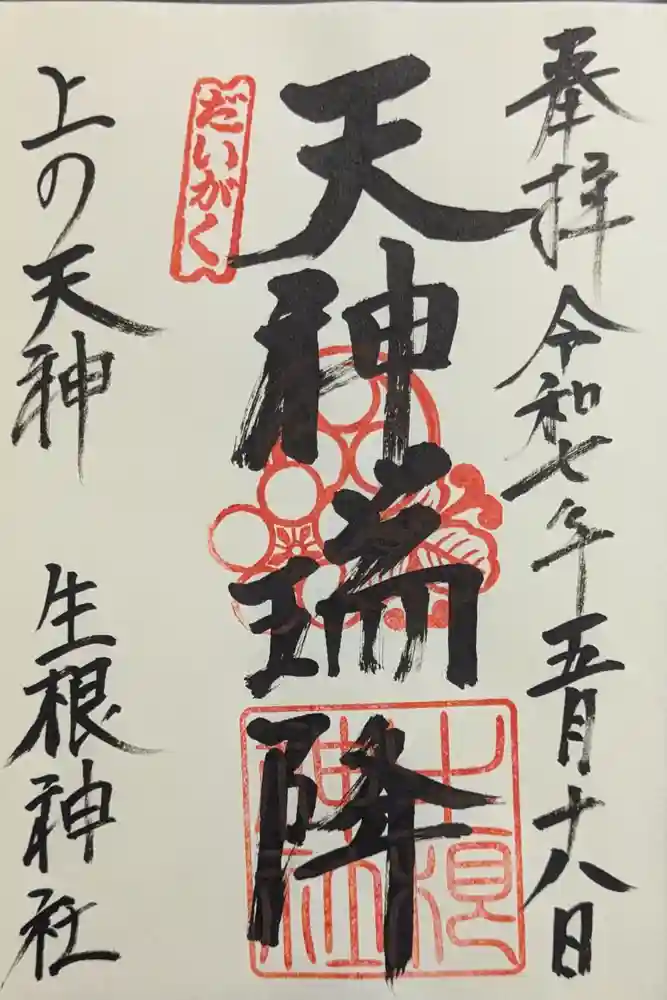 奉拝 令和七年五月十八日
天神瑞降
だいがく
上の天神 生根神社